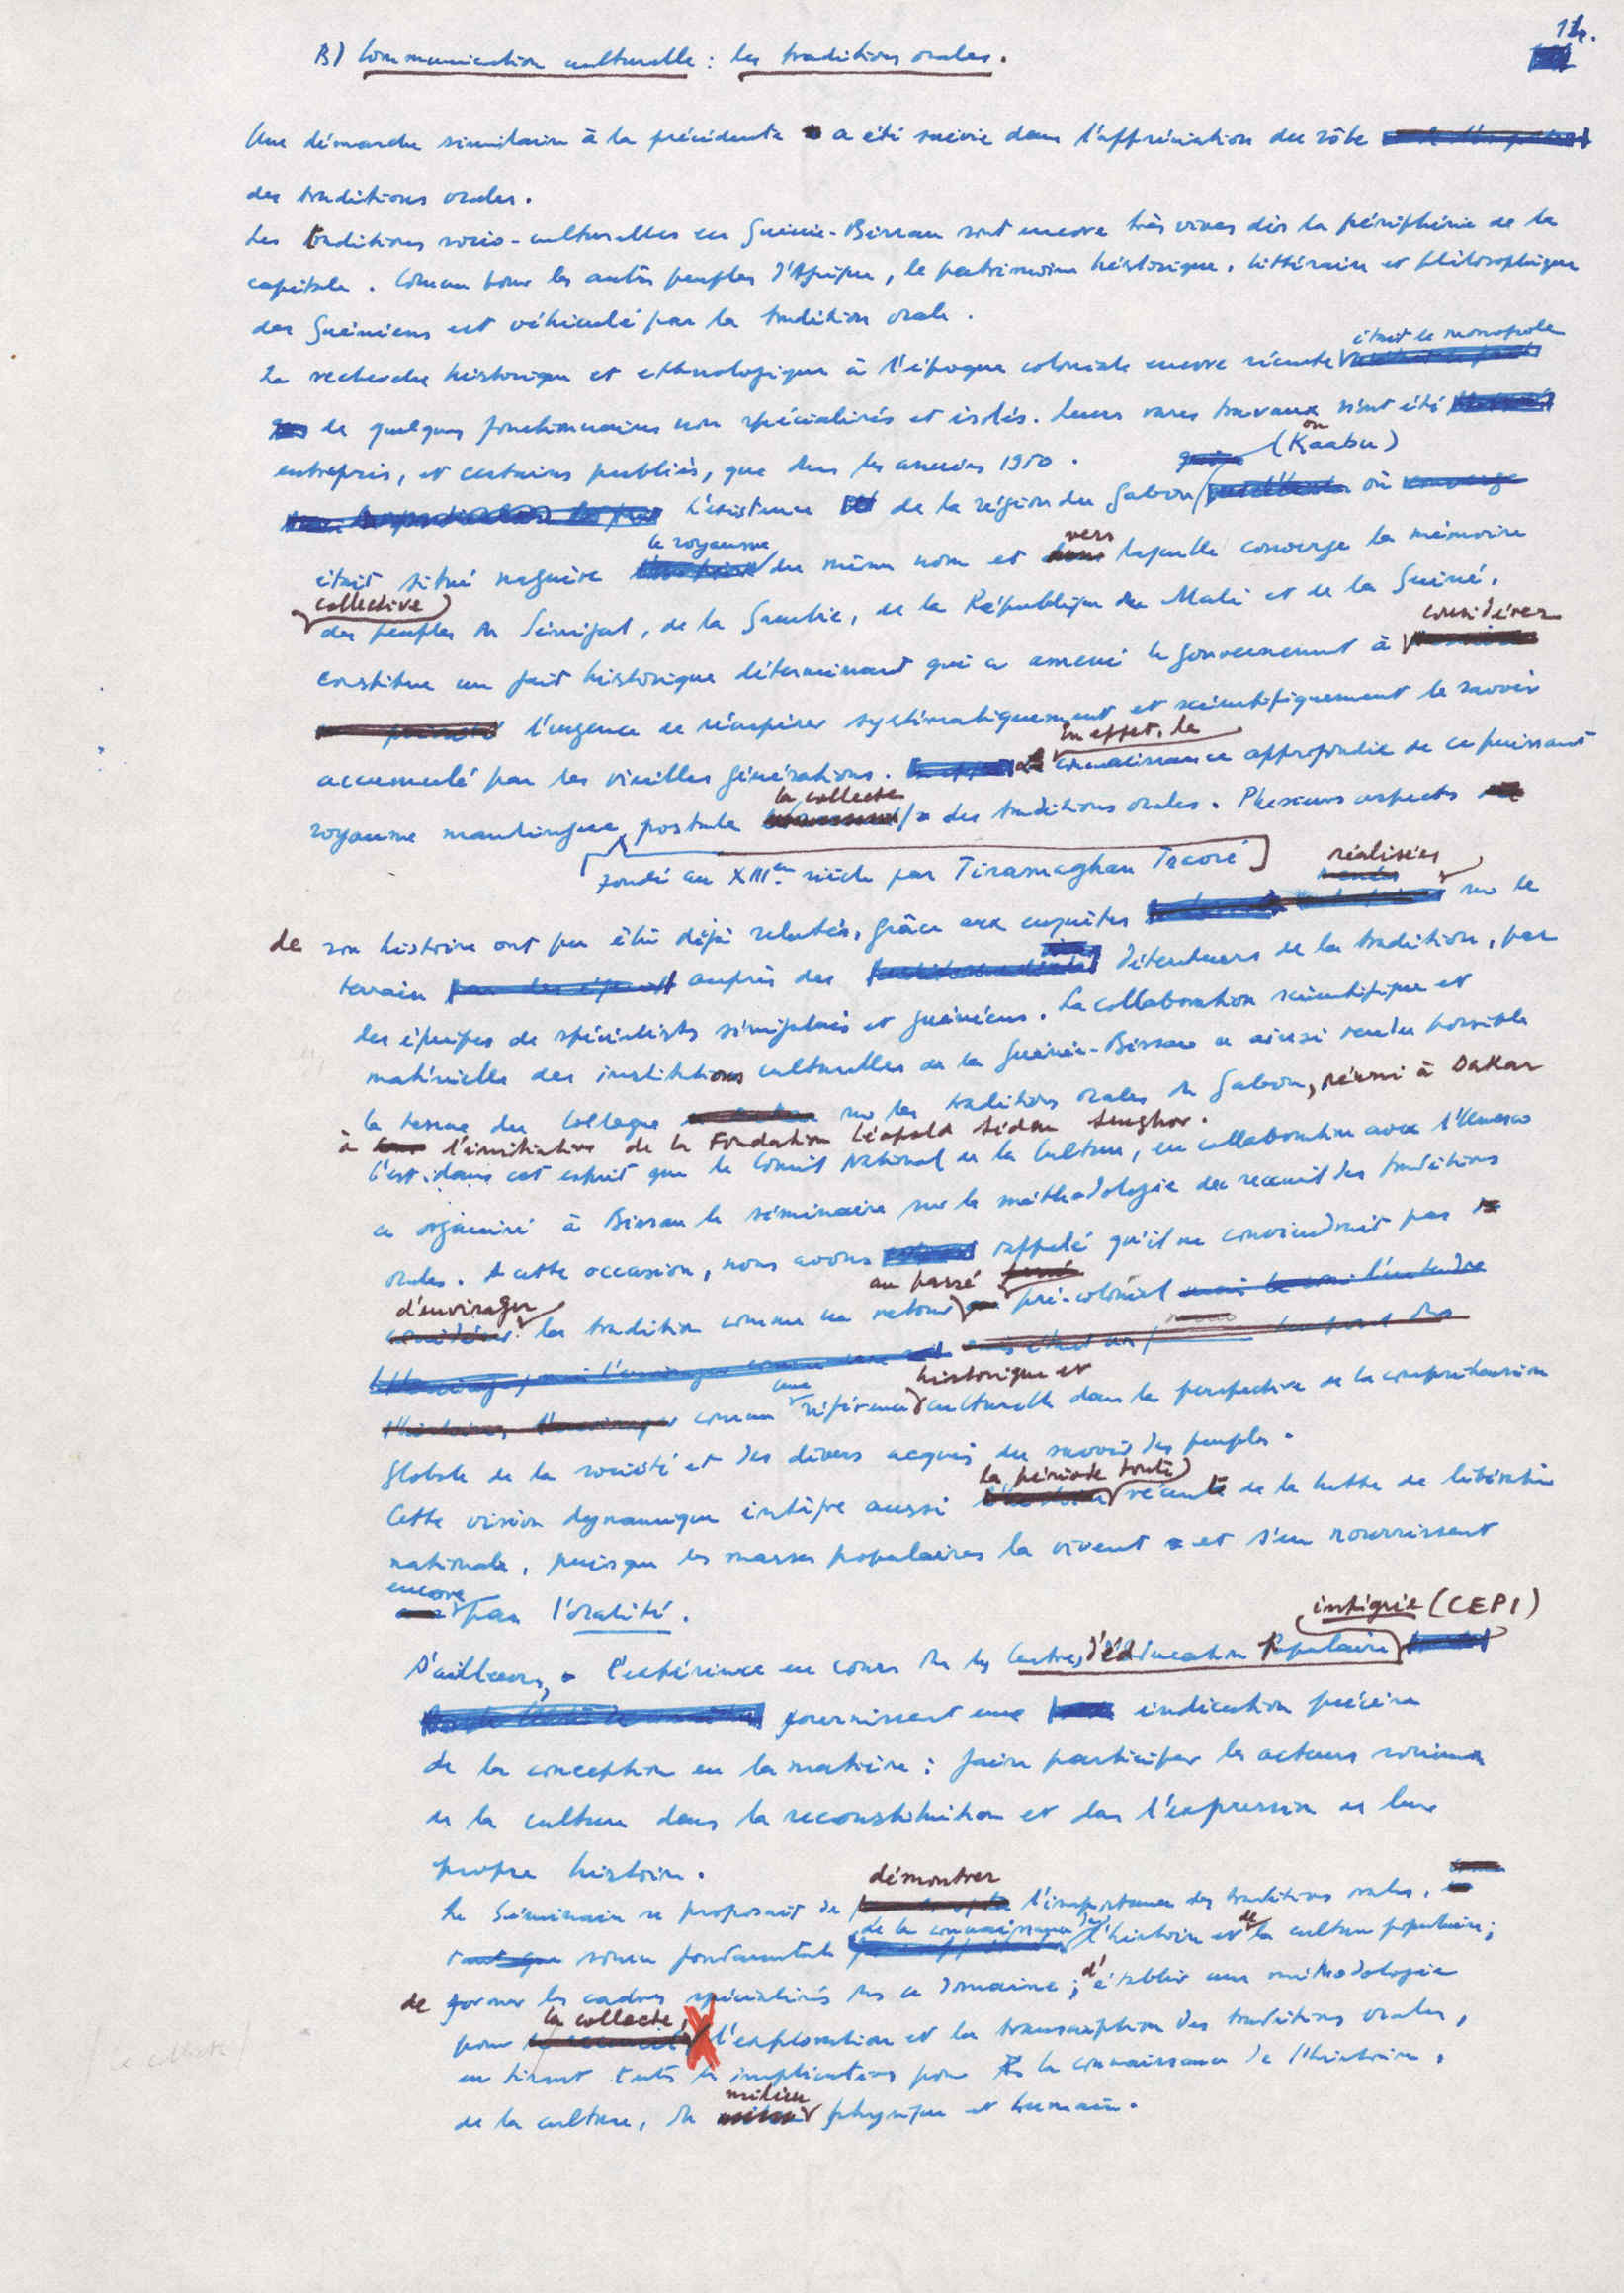 12.
B) Communication culturelle : les traditions orales.
Une démarche similaire à la précédente a été suivie dans l'appréciation du rôle
des traditions orales.
Les traditions socio-culturelles en Guinée-Bissau sont encore très vives dès la périphérie de la
capitale. Comme tous les autres peuples d'Afrique, le patrimoine historique, littéraire et philosophique
des Guinéens est véhiculé par la tradition orale.
était le monopole
La recherche historique et ethnologique à l'époque coloniale encore récente
de quelques fonctionnaires non spécialisés et isolés. Leurs rares travaux n'ont été
ou (Kaabu)
entrepris, et certains publiés, que dans les années 1950.
L'existence de la région du Gabou où
le royaume vers
était situé naguère du même nom et laquelle converge la mémoire
collective
des peuples du Sénégal, de la Gambie, de la République du Mali et de la Guinée,
considérer
constitue un fait historique déterminant qui a amené le gouvernement à
l'urgence de récupérer systématiquement et scientifiquement le savoir
En effet, la
accumulé par les vieilles générations. connaissance approfondie de ce puissant
la collecte
royaume mandingue, postule des traditions orales. Plusieurs aspects
fondé au XIIIe siècle par Tiramaghan Traoré
réalisées
de son histoire ont pu être déjà relatés, grâce aux enquêtes sur le
terrain auprès des détenteurs de la tradition, par
des équipes de spécialistes sénégalais et guinéens. La collaboration scientifique et
matérielle des institutions culturelles de la Guinée-Bissau a ainsi rendu possible
la tenue du Colloque sur les traditions orales du Gabou, réuni à Dakar
à l'initiative de la Fondation Léopold Sédar Senghor.
C'est dans cet esprit que le Comité National de la Culture, en collaboration avec l'Unesco
a organisé à Bissau le séminaire sur la méthodologie du recueil des traditions
orales. A cette occasion, nous avons rappelé qu'il ne conviendrait pas
d'envisager au passé
la tradition comme un retour pré-colonial
une historique et
comme référence culturelle dans la perspective de la compréhension
globale de la société et des divers acquis du savoir des peuples.
la période toute
Cette vision dynamique intègre aussi récente de la lutte de libération
nationale, puisque les masses populaires la vivent et s'en nourrissent
encore
par l'oralité.
intégrée (CEPI)
D'ailleurs, l'expérience en cours des Centres d'Éducation Populaire
fournissent une indication précise
de la conception en la matière : faire participer les acteurs sociaux
de la culture dans la reconstitution et dans l'expression de leur
propre histoire.
démontrer
Le Séminaire se proposait de l'importance des traditions orales,
de la connaissance de de
source fondamentale l'histoire et la culture populaire;
de former les cadres spécialisés dans ce domaine; d'établir une méthodologie
la collecte,
pour l'exploration et la transcription des traditions orales,
en tirant toutes les implications pour la connaissance de l'histoire,
milieu
de la culture, du physique et humain.
(la collecte)